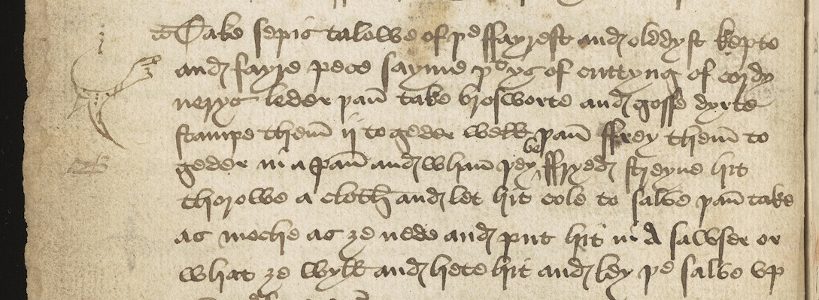 Take sepis talowe of þe ffayrest and olddyst kepte
and fayre pece sayme þt ys of cuttyng of cordy
nerys leder þan take hosworte and gosse dyrte
stampe them ij to geder well þan ffrey them to
geder in a pan and whan þey be ffryed streyne hit
thorowe a cloth and let hit cole to salve þan take
as moche as ze nede and put hit in A sawser or
what ze wyll and hete hit and ley þe salve vp